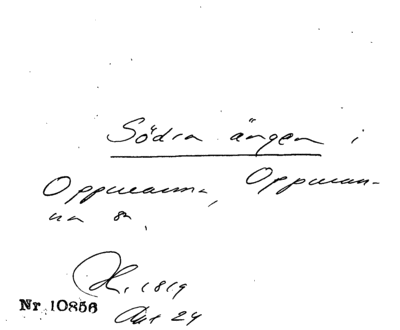 Södra ängen i
Oppmanna, Oppman-
na sn.
1819
Nr 10856
Akt 24